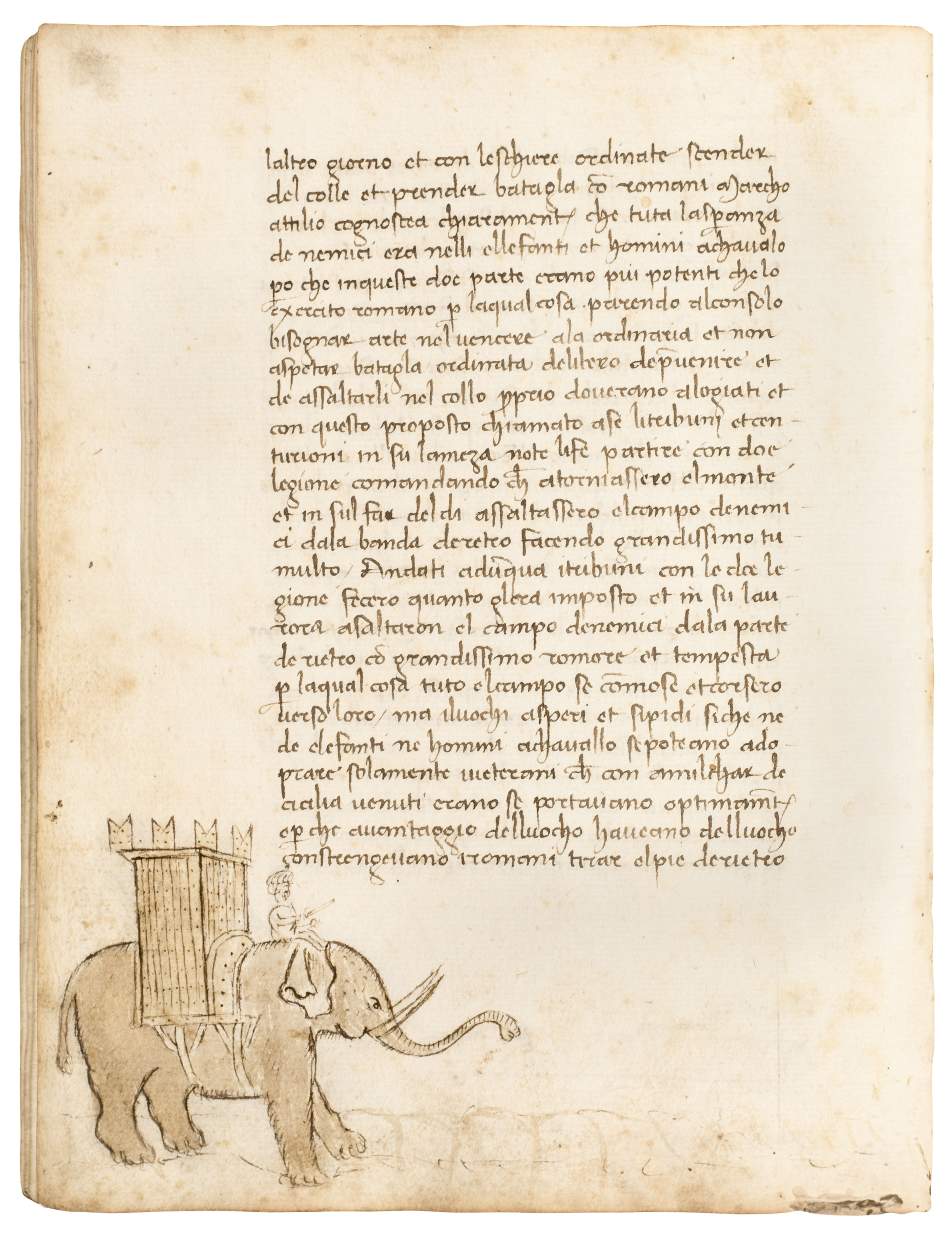 laltro giorno et con leschiere ordinate scender
del colle et prender batagla cō romani Marcho
attilio cognoscea chiarament, che tuta lasp̄anza
de nemici era nelli ellefanti et homini achaualo
p̄o che inqueste doe parte erano piu potenti chelo
exercito romano p̄ laqual cosa parendo alconsolo
bisognar arte nel uencere ala ordinaria et non
aspetar batagla ordinata delibero dep̄uenire et
de assaltarli nel collo p̄prio doverano alogiati et
con questo proposto chiamato ase litribuni et cen-
turioni in su lameza note life partire con doe
legione comandando ch̄ atorniassero elmonte
et in sul far deldi assaltassero elcampo denemi-
ci dala banda deretro facendo grandissimo tu-
multo / Andati adūqua itribuni con le doe le-
gione fecero quanto glera imposto et in su lau-
rora asaltaron el campo denemici dala parte
de rietro cō grandissimo romore et tempesta
p̄ laqual cosa tuto elcampo se cōmose et corsero
uerso loro / ma iluochi asperi et sipidi siche ne
de elefanti ne homini achauallo sepoteano ado-
prare solamente ueterani ch̄ con amilchar de
cicilia uenuti erano se portauano optimam̄t,
e p̄ che auantaggio delluocho haveano delluocho
constrengeuano iromani tirar elpie derietro